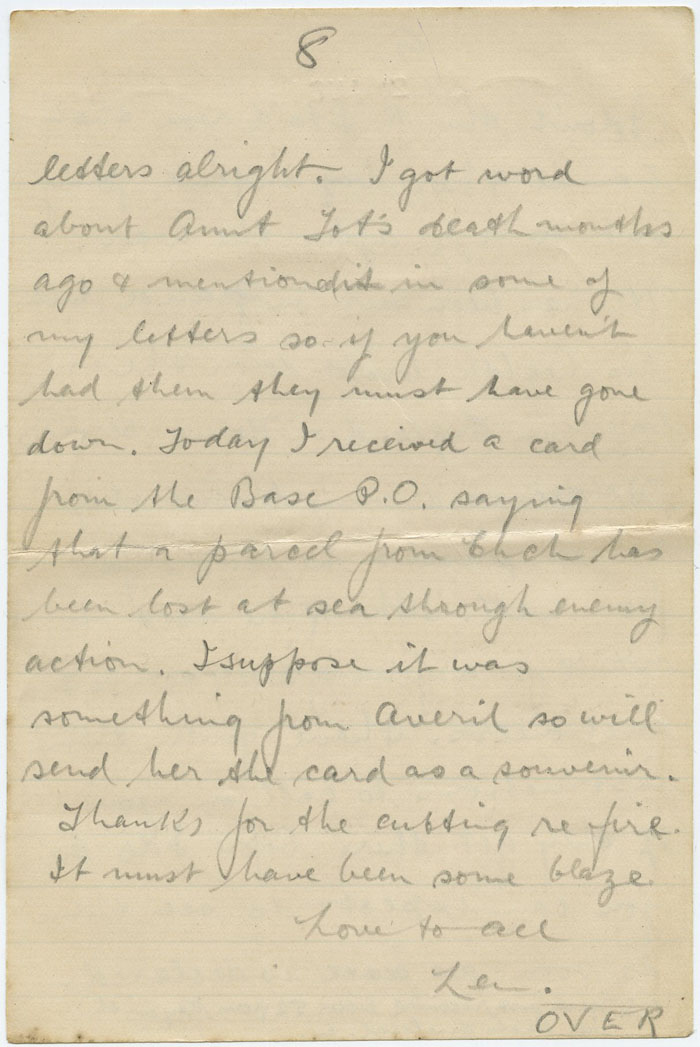 8
letters alright. I got word
about Aunt Tot's death months
ago & mentiondit in some of
my letters so if you haven't
had them they must have gone
down. Today I received a card
from the Base P.O. saying
that a parcel from Chch has
been lost at sea through enemy
action. I suppose it was
something from Averil so will
send her the card as a souvenir.
Thanks for the cutting re fire.
It must have been some blaze.
Love to all
Len.
OVER